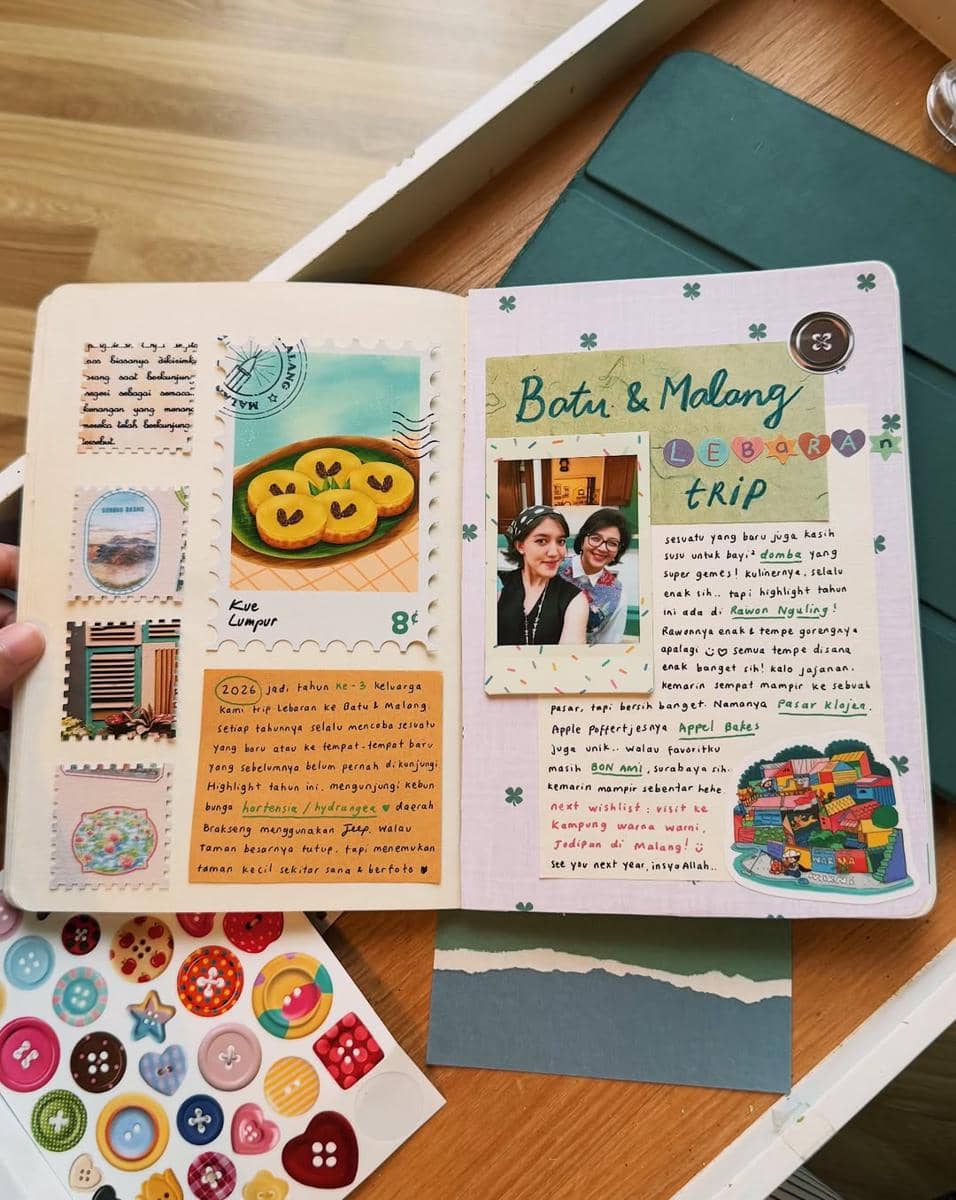 nas biasanya dikirimk
orang saat berkunjun
negeri sebagai semaca
kenangan yang menan
mereka telah berkunjung
tersebut.
MALANG
MALANG
Kue
Lumpur
8¢
2026 jadi tahun ke-3 keluarga
kami trip Lebaran ke Batu & Malang.
Setiap tahunnya selalu mencoba sesuatu
yang baru atau ke tempat-tempat baru
yang sebelumnya belum pernah dikunjungi
Highlight tahun ini, mengunjungi kebun
bunga hortensia / hydrangea ♥ daerah
Brakseng menggunakan Jeep. walau
Taman besarnya tutup, tapi menemukan
taman kecil sekitar sana & berfoto ♥
Batu & Malang
LEBARAn
tRiP
sesuatu yang baru juga kasih
susu untuk bayi² domba yang
super gemes! kulinernya, selalu
enak sih.. tapi highlight tahun
ini ada di Rawon Nguling!
Rawonnya enak & tempe gorengnya
apalagi semua tempe disana
enak banget sih! kalo jajanan,
kemarin sempat mampir ke sebuah
pasar, tapi bersih banget. Namanya Pasar Klojen.
Apple Poffertjesnya Appel Bakes
juga unik.. walau favoritku
masih BON AMI, surabaya sih.
kemarin mampir sebentar hehe
next wishlist : visit ke
Kampung warna warni,
Jodipan di Malang!
See you next year, insyaAllah..
WARNA